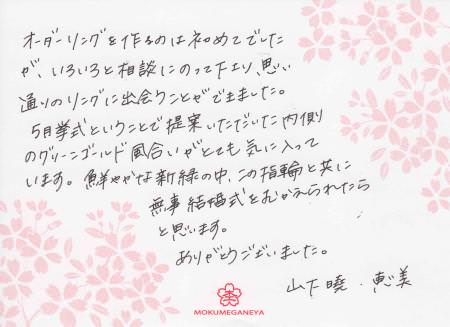 オーダーリングを作るのは初めてでした
が、いろいろと相談にのって下さり、思い
通りのリングに出会うことができました。
5月挙式ということで提案いただいた内側
のグリーンゴールド風合いがとても気に入って
います。鮮やかな新緑の中、この指輪と共に
無事結婚式をむかえられたら
と思います。
ありがとうございました。
山下暁・恵美
MOKUMEGANEYA